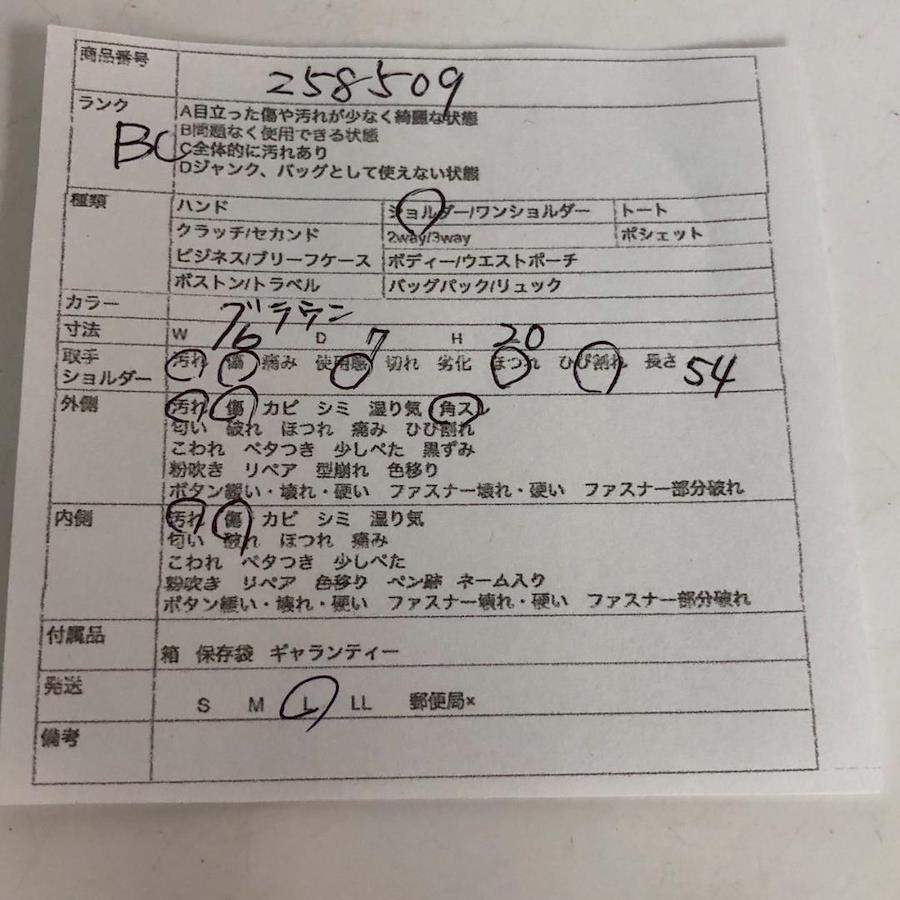 商品番号 258509
ランク BC
A目立った傷や汚れが少なく綺麗な状態
B問題なく使用できる状態
C全体的に汚れあり
Dジャンク、バッグとして使えない状態
種類 ハンド ショルダー/ワンショルダー トート
クラッチ/セカンド 2way/3way ポシェット
ビジネス/ブリーフケース ボディー/ウエストポーチ
ボストン/トラベル バッグパック/リュック
カラー ブラウン
寸法 W 16 D 7 H 20
取手 汚れ 傷 痛み 使用感 切れ 劣化 ほつれ ひび割れ 長さ 54
ショルダー
外側 汚れ 傷 カビ シミ 湿り気 角スレ
匂い 破れ ほつれ 痛み ひび割れ
こわれ ベタつき 少しべた 黒ずみ
粉吹き リペア 型崩れ 色移り
ボタン緩い・壊れ・硬い ファスナー壊れ・硬い ファスナー部分破れ
内側 汚れ 傷 カビ シミ 湿り気
匂い 破れ ほつれ 痛み
こわれ ベタつき 少しべた
粉吹き リペア 色移り ペン跡 ネーム入り
ボタン緩い・壊れ・硬い ファスナー壊れ・硬い ファスナー部分破れ
付属品 箱 保存袋 ギャランティー
発送 S M L LL 郵便局×
備考